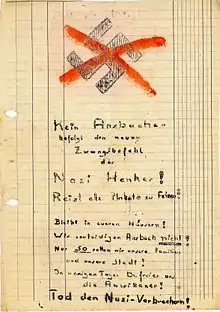 Kein Ansbacher
befolgt den neuen
Zwangsbefehl
der
Nazi Henker!
Reist alle Plakate zu Fetzen!
Bleibt in eueren Häusern!
Wir verteidigen Ansbach nicht!
Nur so retten wir unsere Familien
und unsere Stadt!
In wenigen Tagen befreien uns
die Amerikaner!
Tod den Nazi-Verbrechern!